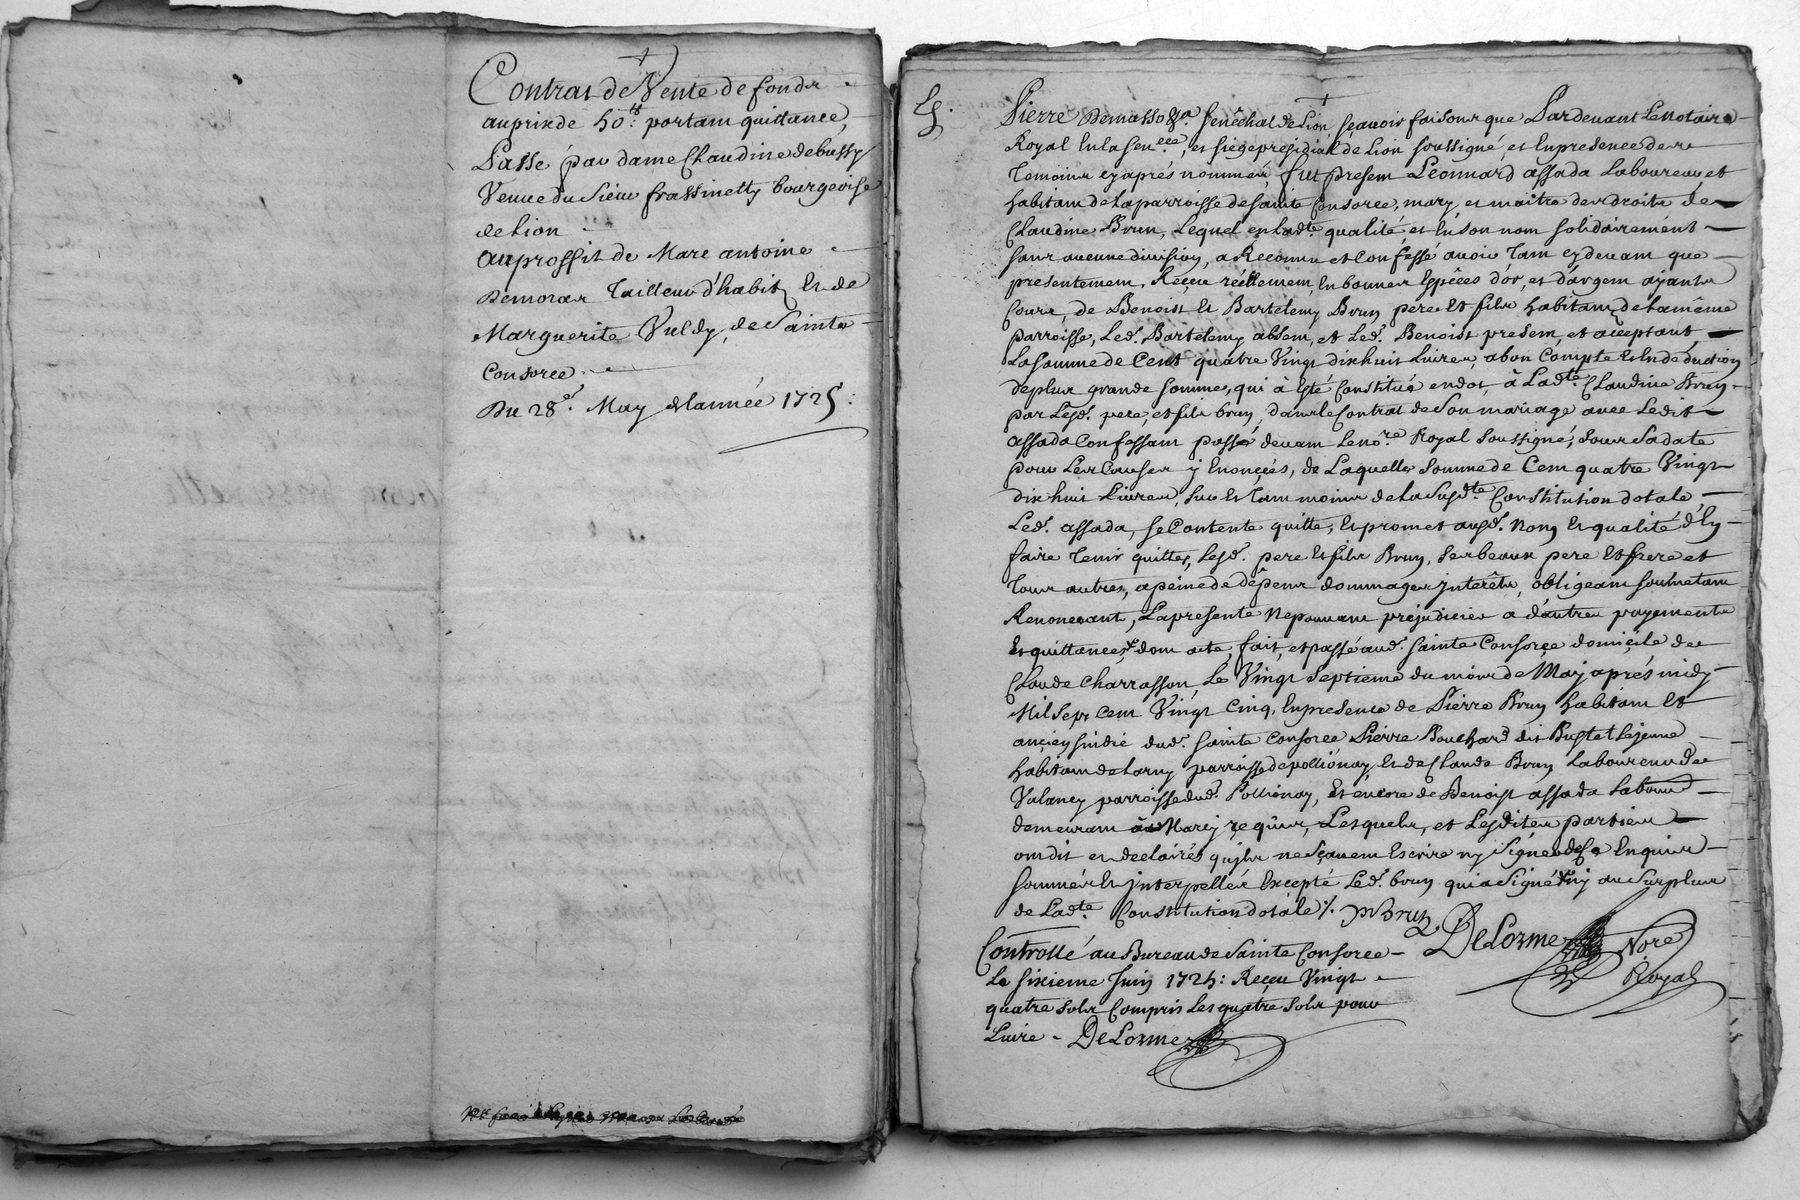 Contrat de Vente de fonds
au prix de 50ᵗᵗ: portant quittance,
Passé par dame Claudine debussy
Veuve du Sieur frassinetty bourgeoise
de Lion
au proffit de Marc antoine
Demoras Tailleur d'habit Et de
Marguerite Vuldy, de Sainte
Consorce
Du 28ᵉ. May de l'année 1725:
Pierre Demasso &ᵃ. senechal de Lion, sçavoir faisons que Pardevant Le Notaire
Royal En la Senᵉᶜᵉᵉ, et siege presidial de Lion soussigné, et En presence des
Temoins cy aprés nommés, fut present Léonnard assada Laboureur et
habitant de La parroisse de Sainte Consorce, mary et maitre des droits de
Claudine Brun, Lequel en Ladᵗᵉ. qualité et En son nom solidairément
sans aucune division, a Reconnu et Confessé avoir Tant cy devant que
presentement, Reçeu réellement, En bonnes Espêces d'or, et d'argent ayants
Cours, de Benoist Et Bartelemy Brun pere Et fils habitans de La même
parroisse, Led. Bartelemy absent, et Led. Benoist present, et acceptant,
La somme de Cent quatre Vingt dix huit Livres, a bon Compte Et En deduction
de plus grande somme, qui a Esté Constitué en dot, à Ladᵗᵉ. Claudine Brun
par Lesd. pere, et fils brun, dans le Contrat de Son mariage avec Ledit
assada Confessant passé devant Le noʳᵉ Royal Soussigné, Sous Sa date
pour Les Causes y Enonçées, de Laquelle Somme de Cent quatre Vingt
dix huit Livres, Sur Et Tant moins de La Susdᵗᵉ Constitution dotale
Led. assada, se Contente quitte, Et promet aud. Nom Et qualité d'En
faire Tenir quittes, Lesd. pere Et fils Brun, Ses beaux pere Et frere et
Tous autres, a peine de dêpens dommages jnterêts, obligeant soumetant
Renoncant, La presente Ne pouvant prejudicier a d'autres payements
Et quittances, dont acte, fait, et passé aud. Sainte Consorce domiçile de
Claude Charrasson, Le Vingt Septieme du mois de May aprés midy
Mil Sept Cent Vingt Cinq, En presence de Pierre Brun habitant Et
ançien sindic dud. Sainte Consorce Pierre Bouchard dit Bustet Lejeune
habitant de Larny parroisse de pollionay, Et de Claude Brun Laboureur de
Valancy parroisse dud. Pollionay, Et encore de Benoist assada Labour
demeurant a Marcy reqûis, Lesquels, et Lesdites parties
ont dit et declairés qu'jls ne sçavent Escrire ny Signer de ce Enquis
sommés Et jnterpellés Excepté Led. brun qui a Signé ny au Surplus
de Ladᵗᵉ. Constitution dotale %. P Brun DeLorme Noʳᵉ
Royal
Controllé au Bureau de Sainte Consorce
Le sixieme Juin 1725: Reçeu Vingt
quatre sols Compris Les quatre Sols pour
Livre - DeLorme